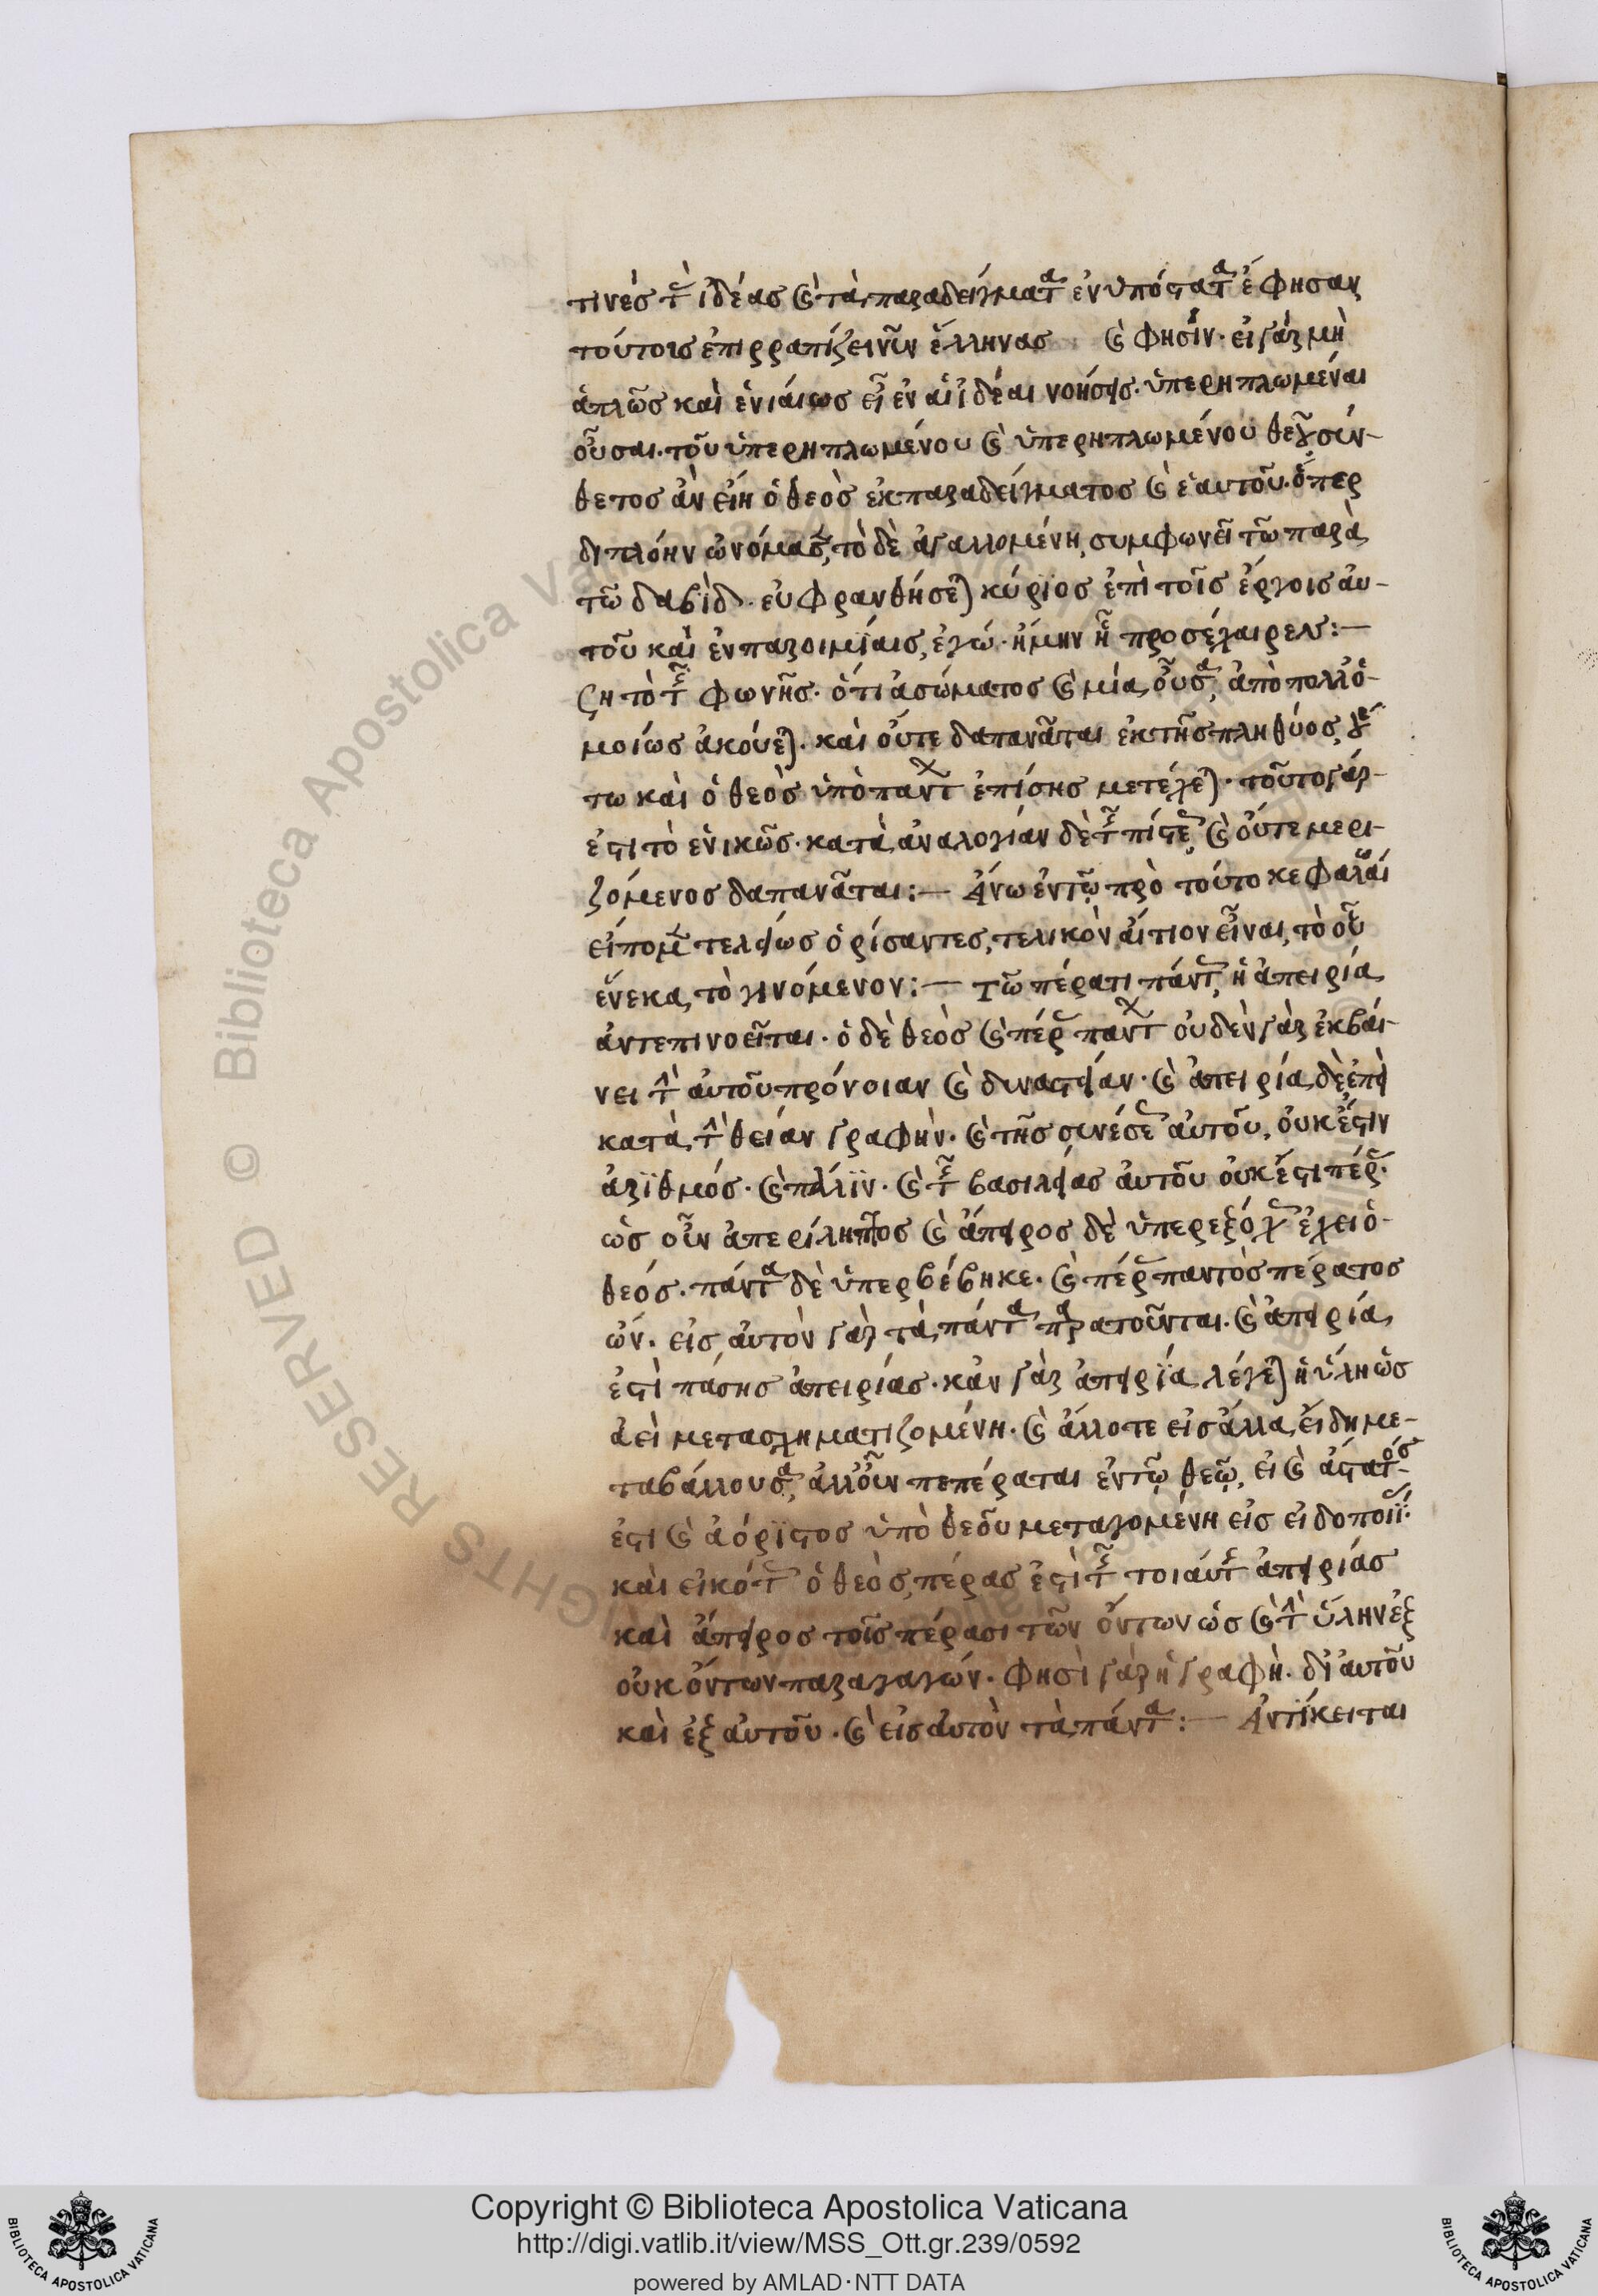 τινὲς τ̀ ἰδέας κ̀ τὰ παραδείγματα ἐνυπόστατα ἔφησαν
τούτοις ἐπιρραπίζει νῦν ἕλληνας κ̀ φησίν· εἰ γὰρ μὴ
ἁπλῶς καὶ ἑνιαίως εἶεν αἱ ἰδέαι νοήσεις· ὑπερηπλωμέναι
οὖσαι· τοῦ ὑπερηπλωμένου κ̀ ὑπερηπλωμένου θεοῦ, σύν-
θετος ἂν εἴη ὁ θεὸς ἐκ παραδείγματος κ̀ ἑαυτοῦ· ὅπερ
διπλόην ὠνόμασε, τὸ δὲ ἀγαλλομένη, συμφωνεῖ τῶ παρὰ
τῶ δαβίδ· εὐφρανθήσεται κύριος ἐπὶ τοῖς ἔργοις αὐ-
τοῦ καὶ ἐν παροιμίαις, ἐγώ· ἤμην ἧ προσέχαιρεν:—
ζη τὸ τῆς φωνῆς· ὅτι ἀσώματος κ̀ μία οὖσα, ἀπὸ πολλῶν ὁ-
μοίως ἀκούεται· καὶ οὔτε δαπανᾶται ἐκ τῆς πληθύος, οὕ
τω καὶ ὁ θεὸς ὑπὸ πάντων ἐπίσης μετέχεται· τοῦτο γάρ
ἐστι τὸ ἑνικῶς· κατὰ ἀναλογίαν δὲ τῆς πίστεως κ̀ οὔτε μερι-
ζόμενος δαπανᾶται:— Ἄνω ἐν τῶ πρὸ τούτου κεφαλαίω
εἴπομεν τελείως ὁρίσαντες, τελικὸν αἴτιον εἶναι, τὸ οὗ
ἕνεκα, τὸ γινόμενον:— τῶ πέρατι πάντως, ἡ ἀπειρία
ἀντεπινοεῖται· ὁ δὲ θεὸς κ̀ πέρας πάντων οὐδὲν γὰρ ἐκβαί-
νει τὴν αὐτοῦ πρόνοιαν κ̀ δυναστείαν· κ̀ ἀπειρία δὲ ἐπεὶ
κατὰ τὴν θείαν γραφὴν· κ̀ τῆς συνέσεως αὐτοῦ, οὐκ ἔστιν
ἀριθμός· κ̀ πάλιν· κ̀ τῆς βασιλείας αὐτοῦ οὐκ ἔστι πέρας·
ὡς οὖν ἀπερίληπτος κ̀ ἄπειρος δὲ ὑπερεξόχως ἔχει ὁ-
θεός· πάντα δὲ ὑπερβέβηκε· κ̀ πέρας παντὸς πέρατος
ὤν· εἰς αὐτὸν γὰρ τὰ πάντα περατοῦνται· κ̀ ἀπειρία
ἐστὶ πάσης ἀπειρίας· κἂν γὰρ ἀπειρία λέγεται ἡ ὕλη ὡς
ἀεὶ μετασχηματιζομένη· κ̀ ἄλλοτε εἰς ἄλλα εἴδη με-
ταβάλλουσα, ἀλλ' οὖν πεπέραται ἐν τῶ θεῶ, εἰ κ̀ ἄστατός
ἐστι κ̀ ἀόριστος ὑπὸ θεοῦ μεταγομένη εἰς εἰδοποιΐαν·
καὶ εἰκότως ὁ θεὸς, πέρας ἐστὶ τῆς τοιαύτης ἀπειρίας
καὶ ἄπειρος τοῖς πέρασι τῶν ὄντων ὡς κ̀ τὴν ὕλην ἐξ
οὐκ ὄντων παραγαγών· φησὶ γὰρ ἡ γραφὴ· δι' αὐτοῦ
καὶ ἐξ αὐτοῦ· κ̀ εἰς αὐτὸν τὰ πάντα:— Ἀντίκειται
Biblioteca Apostolica Vaticana
© RIGHTS RESERVED
Copyright © Biblioteca Apostolica Vaticana
http://digi.vatlib.it/view/MSS_Ott.gr.239/0592
powered by AMLAD·NTT DATA
BIBLIOTECA APOSTOLICA VATICANA
BIBLIOTECA APOSTOLICA VATICANA